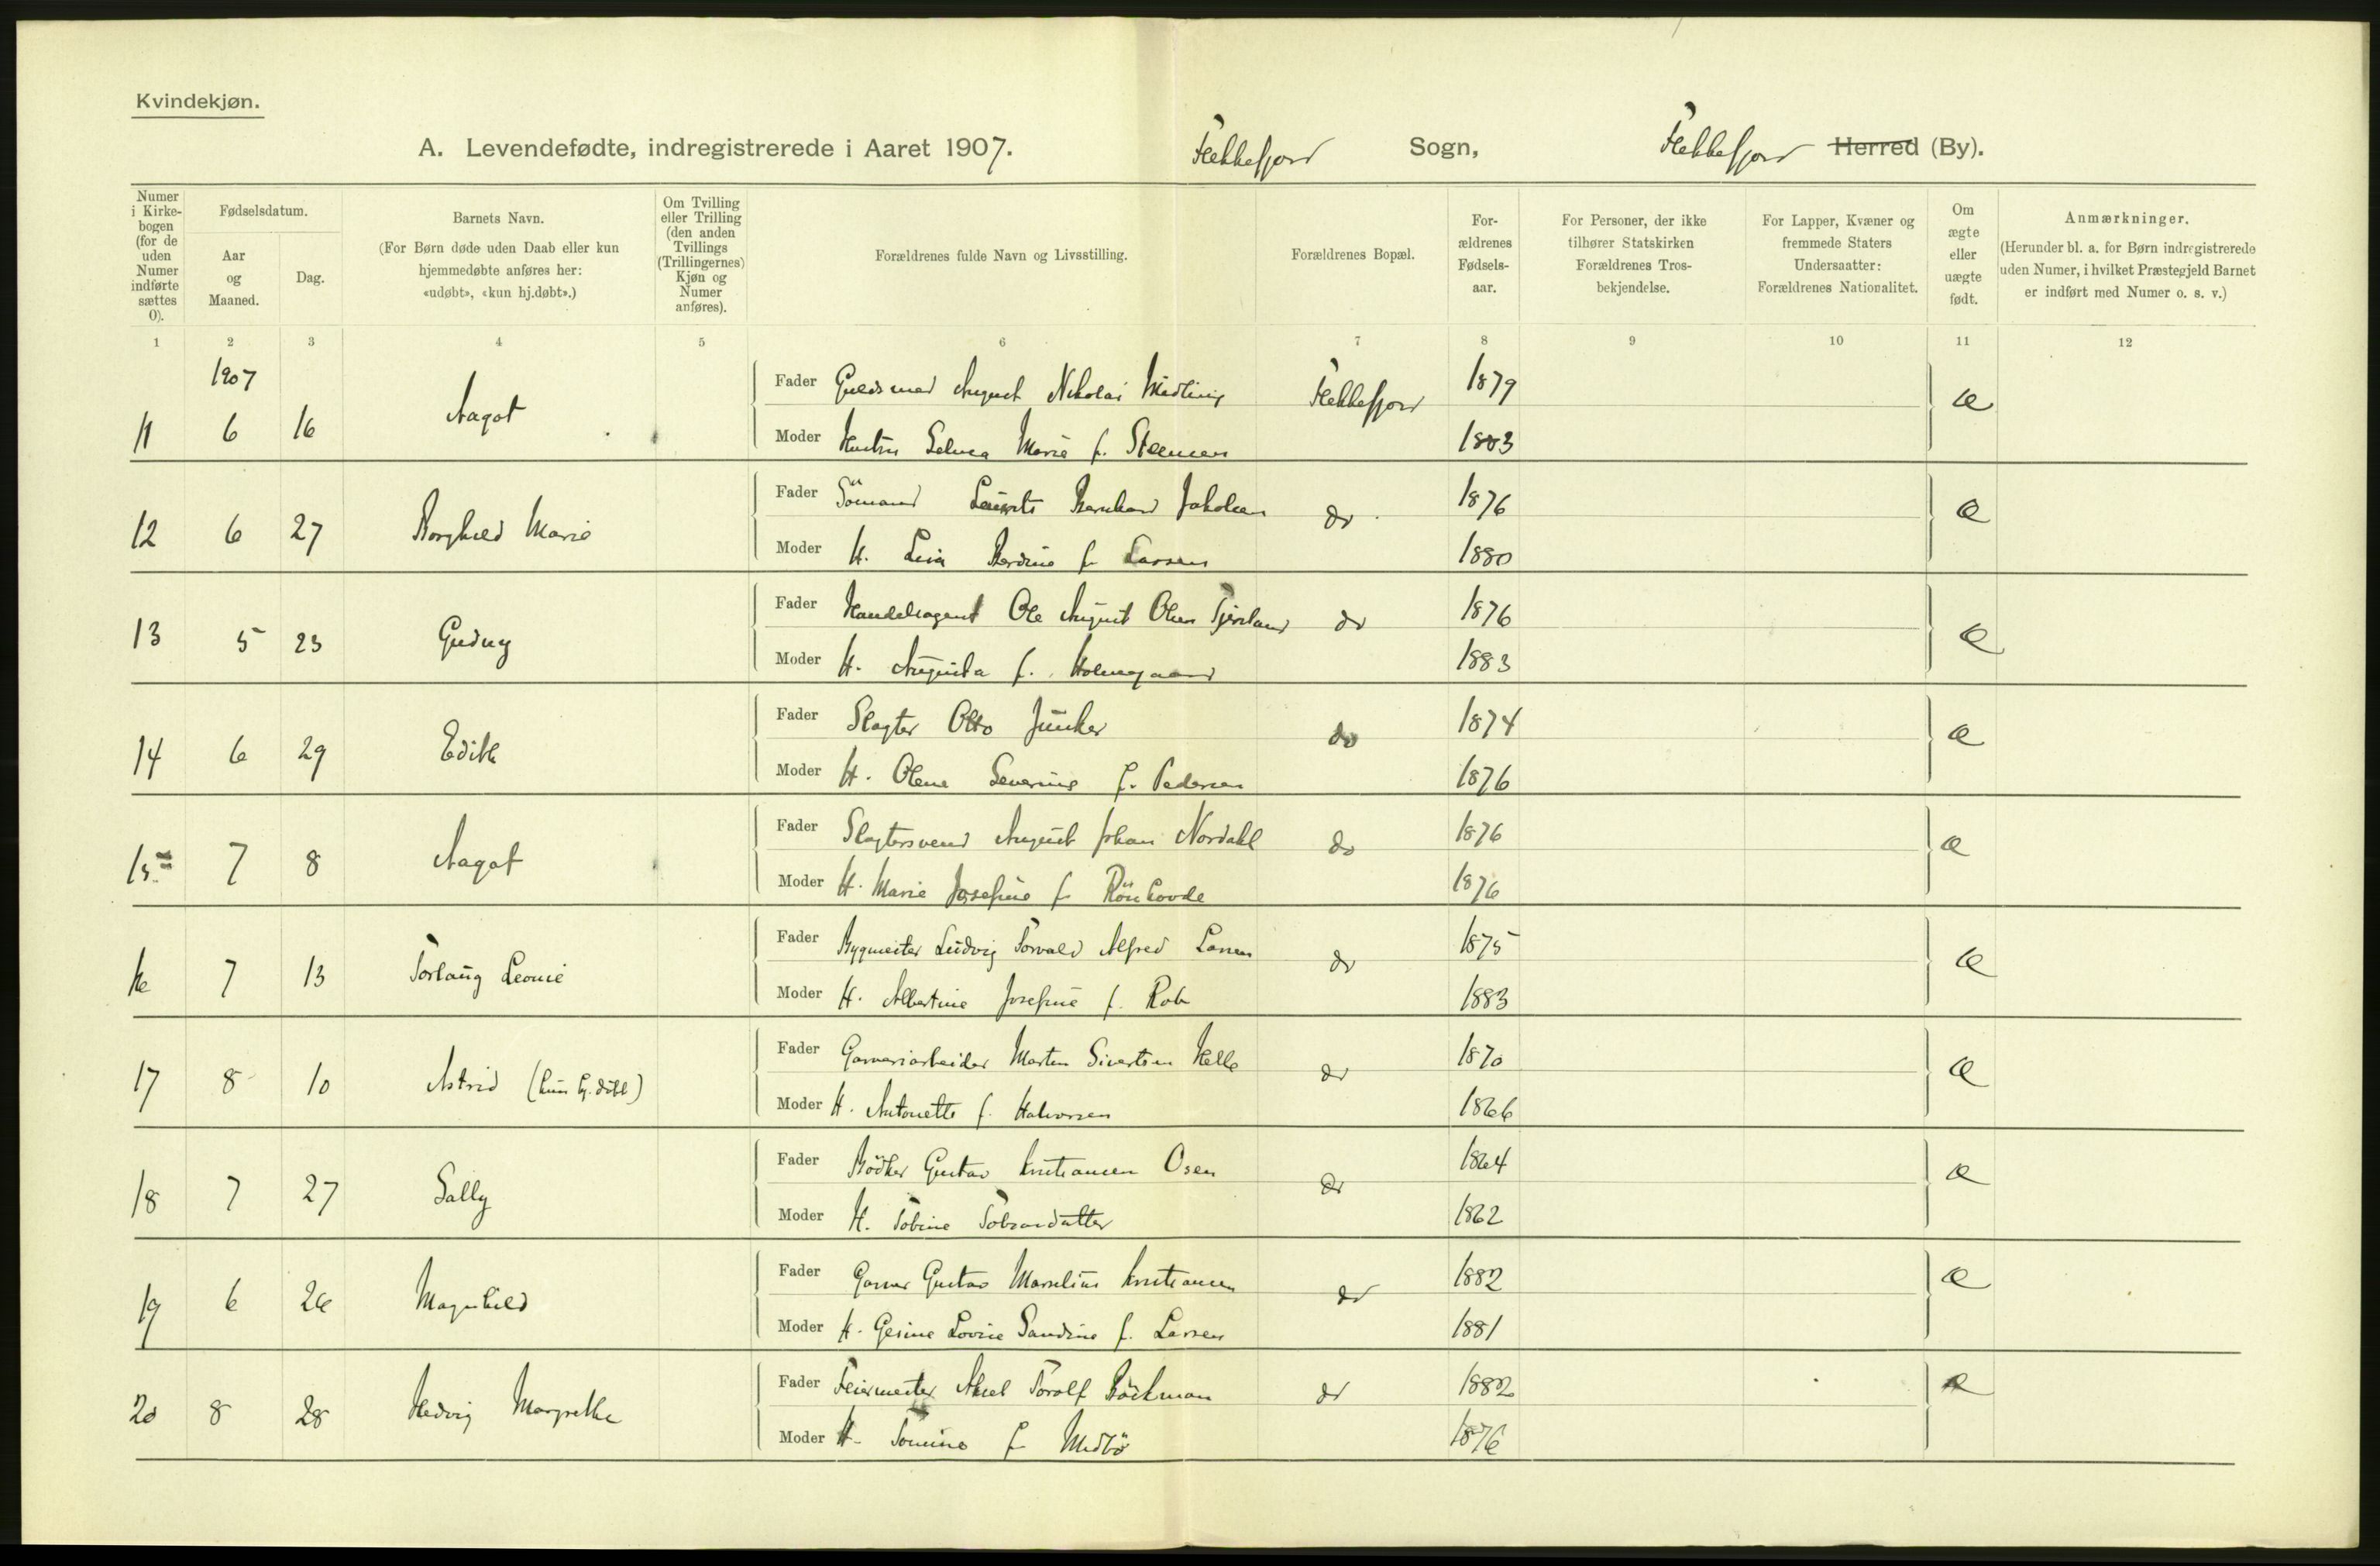 Kvindekjøn.
A. Levendefødte, indregistrerede i Aaret 1907. Flekkefjord Sogn, Flekkefjord Herred (By).
Numer i Kirkebogen (for de uden Numer indførte sættes 0).
Fødselsdatum.
Aar og Maaned.
Dag.
Barnets Navn.
(For Børn døde uden Daab eller kun
hjemmedøbte anføres her:
«udøbt», «kun hj.døbt».)
Om Tvilling eller Trilling (den anden Tvillings (Trillingernes) Kjøn og Numer anføres).
Forældrenes fulde Navn og Livsstilling.
Forældrenes Bopæl.
Forældrenes Fødselsaar.
For Personer, der ikke
tilhører Statskirken
Forældrenes Trosbekjendelse.
For Lapper, Kvæner og
fremmede Staters
Undersaatter:
Forældrenes Nationalitet.
Om ægte eller uægte født.
Anmærkninger.
(Herunder bl. a. for Børn indregistrerede
uden Numer, i hvilket Præstegjeld Barnet
er indført med Numer o. s. v.)
1 2 3 4 5 6 7 8 9 10 11 12
1907
11 6 16 Aagot
Fader Guldsmed August Nikolai Midling Flekkefjord 1879 æ
Moder Hustru Selma Marie f. Steensen 1883
12 6 27 Borghild Marie
Fader Sömand Laurits Bernhard Jakobsen do 1876 æ
Moder H. Lina Berdine f. Larsen 1880
13 5 23 Gudny
Fader Handelsagent Ole August Olsen do 1876 æ
Moder H. Augusta f. Holmegaard 1883
14 6 29 Edith
Fader Slagter Otto Junker do 1874 æ
Moder H. Olene Severine f. Pedersen 1876
15 7 8 Aagot
Fader Slagtersvend August Johan Nordahl do 1876 æ
Moder H. Marie Josefine f. 1876
16 7 13 Torlaug Leonie
Fader Bygmester Ludvig Torvald Alfred Larsen do 1875 æ
Moder H. Albertine Josefine f. 1883
17 8 10 Astrid (kun hj. döbt)
Fader Garveriarbeider Martin Sivertsen Helle do 1870 æ
Moder H. Antonette f. Halvorsen 1866
18 7 27 Sally
Fader Bödker Gustav Kristiansen Osen do 1864 æ
Moder H. Tobine 1862
19 6 26 Magnhild
Fader Garver Gustav Marselius Kristiansen do 1882 æ
Moder H. Gesine Lovise Sandine f. Larsen 1881
20 8 28 Hedvig Margrethe
Fader Feiermester Aksel Torolf Böckman do 1882 æ
Moder H. Tomine f. Midbö 1876